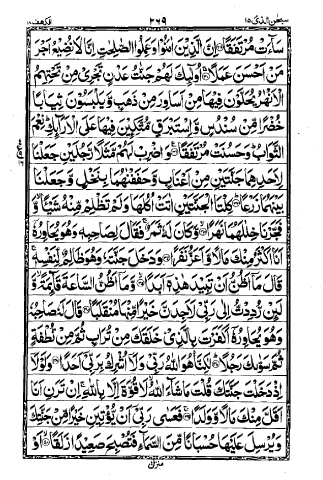 سبحٰن الذی ۱۵
۲۶۹
الکهف ۱۸
سَآءَتْ مُرْتَفَقًا۝ اِنَّ الَّذِیْنَ اٰمَنُوْا وَعَمِلُوا الصّٰلِحٰتِ اِنَّا لَا نُضِیْعُ اَجْرَ
مَنْ اَحْسَنَ عَمَلًا۝ اُولٰٓئِكَ لَهُمْ جَنّٰتُ عَدْنٍ تَجْرِیْ مِنْ تَحْتِهِمُ
الْاَنْهٰرُ یُحَلَّوْنَ فِیْهَا مِنْ اَسَاوِرَ مِنْ ذَهَبٍ وَّیَلْبَسُوْنَ ثِیَابًا
خُضْرًا مِّنْ سُنْدُسٍ وَّاِسْتَبْرَقٍ مُّتَّكِـِٕیْنَ فِیْهَا عَلَی الْاَرَآئِكِ ؕ نِعْمَ
الثَّوَابُ ؕ وَحَسُنَتْ مُرْتَفَقًا۝ وَاضْرِبْ لَهُمْ مَّثَلًا رَّجُلَیْنِ جَعَلْنَا
لِاَحَدِهِمَا جَنَّتَیْنِ مِنْ اَعْنَابٍ وَّحَفَفْنٰهُمَا بِنَخْلٍ وَّجَعَلْنَا
بَیْنَهُمَا زَرْعًا۝ كِلْتَا الْجَنَّتَیْنِ اٰتَتْ اُكُلَهَا وَلَمْ تَظْلِمْ مِّنْهُ شَیْـًٔا ۙ وَّ
فَجَّرْنَا خِلٰلَهُمَا نَهَرًا۝ وَّكَانَ لَهٗ ثَمَرٌ ۚ فَقَالَ لِصَاحِبِهٖ وَهُوَ یُحَاوِرُهٗۤ
اَنَا اَكْثَرُ مِنْكَ مَالًا وَّاَعَزُّ نَفَرًا۝ وَدَخَلَ جَنَّتَهٗ وَهُوَ ظَالِمٌ لِّنَفْسِهٖ ۚ
قَالَ مَاۤ اَظُنُّ اَنْ تَبِیْدَ هٰذِهٖۤ اَبَدًا۝ وَّمَاۤ اَظُنُّ السَّاعَةَ قَآئِمَةً ۙ وَّ
لَئِنْ رُّدِدْتُّ اِلٰی رَبِّیْ لَاَجِدَنَّ خَیْرًا مِّنْهَا مُنْقَلَبًا۝ قَالَ لَهٗ صَاحِبُهٗ
وَهُوَ یُحَاوِرُهٗۤ اَكَفَرْتَ بِالَّذِیْ خَلَقَكَ مِنْ تُرَابٍ ثُمَّ مِنْ نُّطْفَةٍ
ثُمَّ سَوّٰىكَ رَجُلًا۝ لٰكِنَّا۠ هُوَ اللّٰهُ رَبِّیْ وَلَاۤ اُشْرِكُ بِرَبِّیْۤ اَحَدًا۝ وَلَوْلَاۤ
اِذْ دَخَلْتَ جَنَّتَكَ قُلْتَ مَا شَآءَ اللّٰهُ ۙ لَا قُوَّةَ اِلَّا بِاللّٰهِ ۚ اِنْ تَرَنِ اَنَا
اَقَلَّ مِنْكَ مَالًا وَّوَلَدًا۝ فَعَسٰی رَبِّیْۤ اَنْ یُّؤْتِیَنِ خَیْرًا مِّنْ جَنَّتِكَ
وَیُرْسِلَ عَلَیْهَا حُسْبَانًا مِّنَ السَّمَآءِ فَتُصْبِحَ صَعِیْدًا زَلَقًا۝ اَوْ
منزل